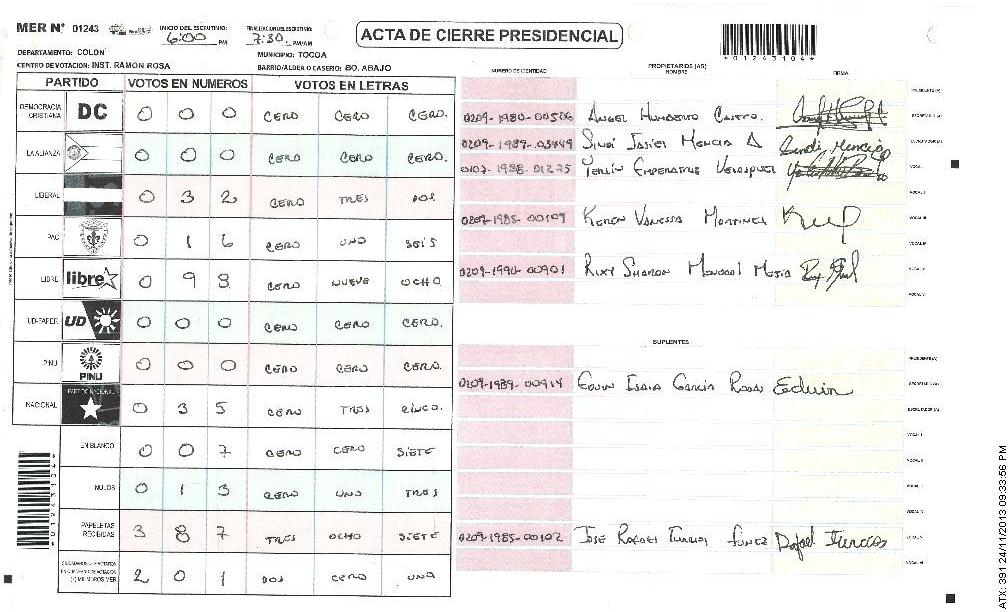 MER N° 01243 INICIO DEL ESCRUTINIO: 6:00 PM FINALIZACION DEL ESCRUTINIO: 7:30 PM/AM
ACTA DE CIERRE PRESIDENCIAL
*01243104*
DEPARTAMENTO: COLON MUNICIPIO: TOCOA
CENTRO DE VOTACION: INST. RAMON ROSA BARRIO/ALDEA O CASERIO: BO. ABAJO
NUMERO DE IDENTIDAD PROPIETARIOS (AS) NOMBRE FIRMA
PARTIDO VOTOS EN NUMEROS VOTOS EN LETRAS
PRESIDENTE(A)
DEMOCRACIA CRISTIANA DC 0 0 0 CERO CERO CERO.
0209-1980-00506 ANGEL HUMBERTO CASTRO. SECRETARIO(A)
LA ALIANZA 0 0 0 CERO CERO CERO.
0209-1989-03449 MENCIA ESCRUTADOR(A)
0107-1988-01275 VOCAL I
LIBERAL 0 3 2 CERO TRES DOS
VOCAL II
0209-1985-00109 KAREN VANESSA MARTINEZ VOCAL III
PAC 0 1 6 CERO UNO SEIS
VOCAL IV
LIBRE libre 0 9 8 CERO NUEVE OCHO
SHARON VOCAL V
VOCAL VI
UD-FAPER UD 0 0 0 CERO CERO CERO.
SUPLENTES
PINU PINU 0 0 0 CERO CERO CERO.
PRESIDENTE(A)
0209-1989-00914 EDWIN ISAIA GARCIA ROSA Edwin SECRETARIO(A)
NACIONAL PARTIDO NACIONAL 0 3 5 CERO TRES CINCO.
ESCRUTADOR (A)
VOCAL I
EN BLANCO 0 0 7 CERO CERO SIETE
VOCAL II
VOCAL III
NULOS 0 1 3 CERO UNO TRES
VOCAL IV
PAPELETAS RECIBIDAS 3 8 7 TRES OCHO SIETE
0209-1985-00102 JOSE RAFAEL FUNEZ Rafael VOCAL V
VOCAL VI
CIUDADANOS QUE VOTARON EN CUADERNO DE VOTACION (+) MIEMBROS MER 2 0 1 DOS CERO UNO
*01243104*
ATX: 391 24/11/2013 09:33:56 PM